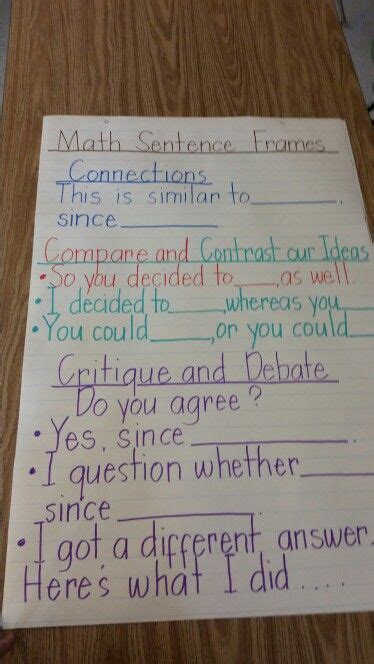 Math Sentence Frames
Connections
This is similar to________,
since________.
Compare and Contrast our Ideas
•So you decided to____,as well.
•I decided to_____,whereas you____
•You could_____,or you could____
Critique and Debate
Do you agree?
•Yes, since ____________.
•I question whether______
since __________.
•I got a different answer.
Here's what I did ....